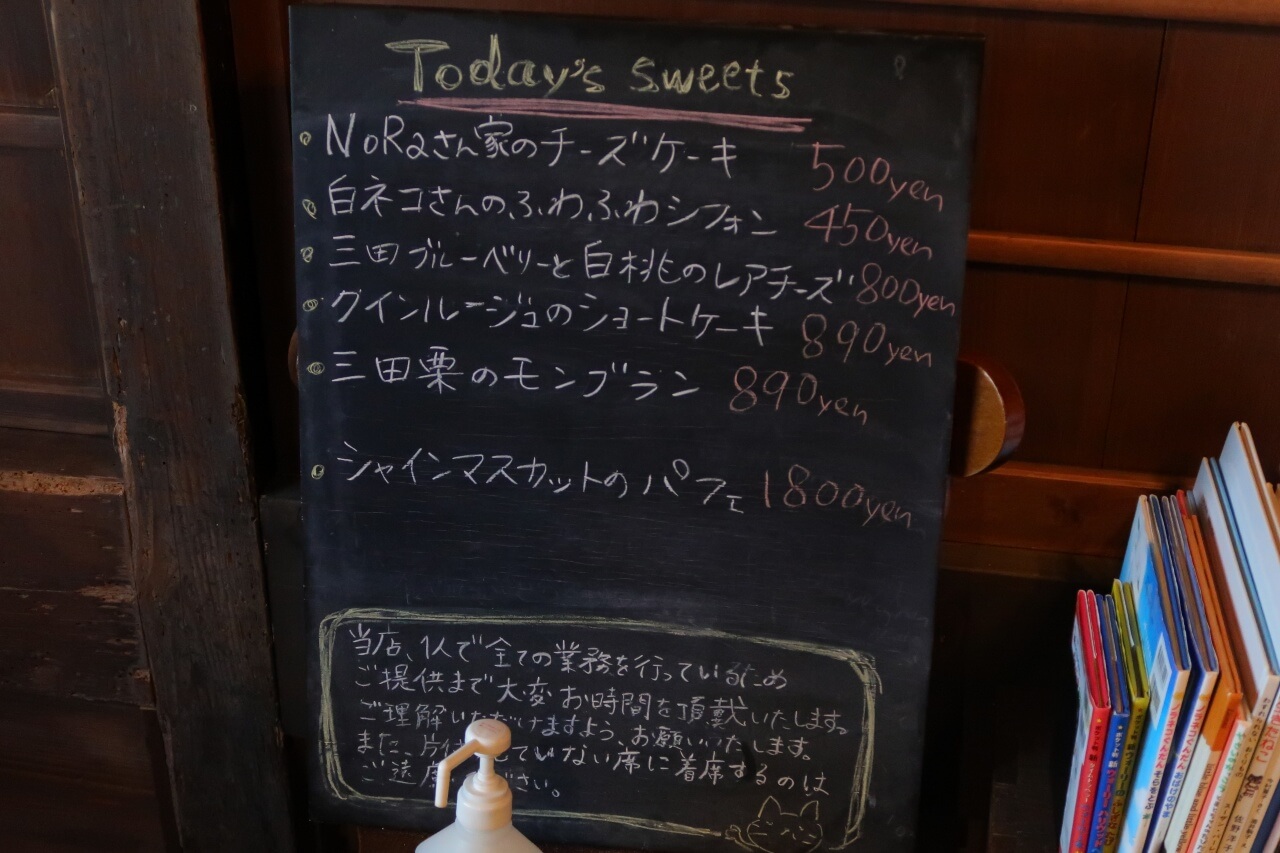 Today's sweets
NoRaさん家のチーズケーキ 500yen
白ネコさんのふわふわシフォン 450yen
三田ブルーベリーと白桃のレアチーズ 800yen
クインルージュのショートケーキ 890yen
三田栗のモンブラン 890yen
シャインマスカットのパフェ 1800yen
当店、1人で全ての業務を行っているため
ご提供まで大変お時間を頂戴いたします。
ご理解いただけますよう、お願いいたします。
また、片付していない席に着席するのは
ご遠ださい。